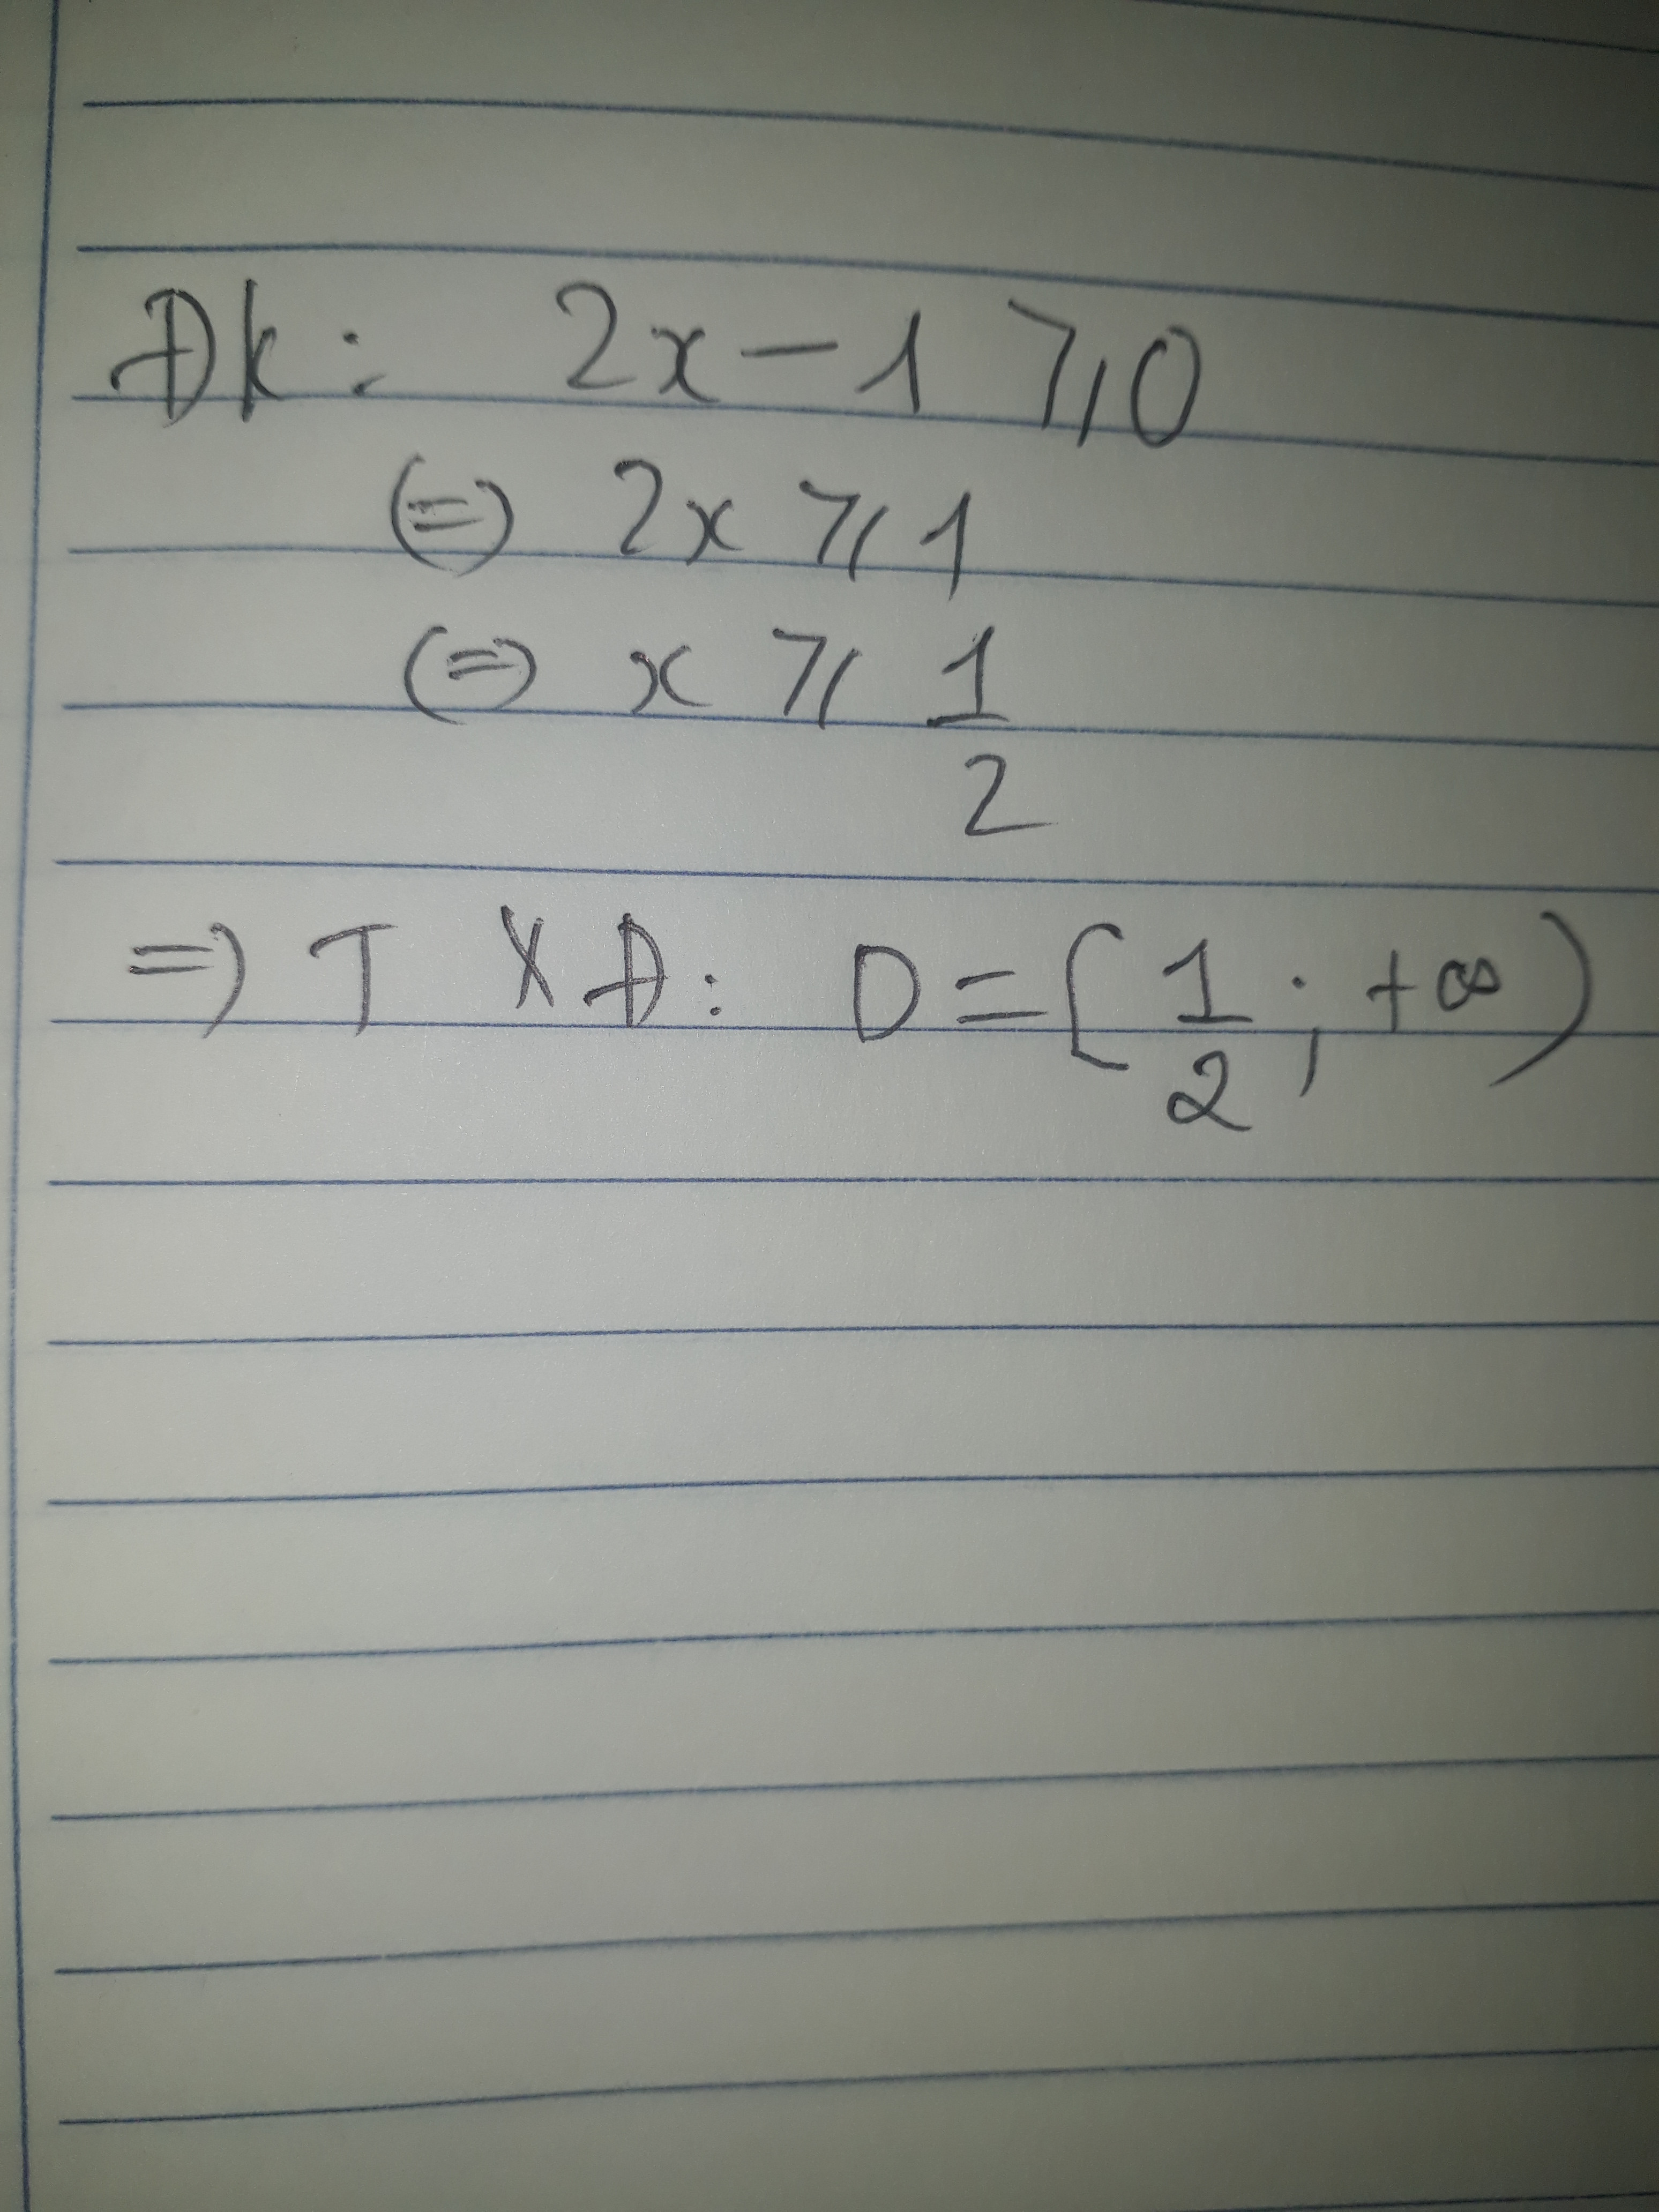 Đk: 2x - 1 ⩾ 0
(=) 2x ⩾ 1
(=) x ⩾ 1/2
=) TXĐ: D = [1/2; +∞)